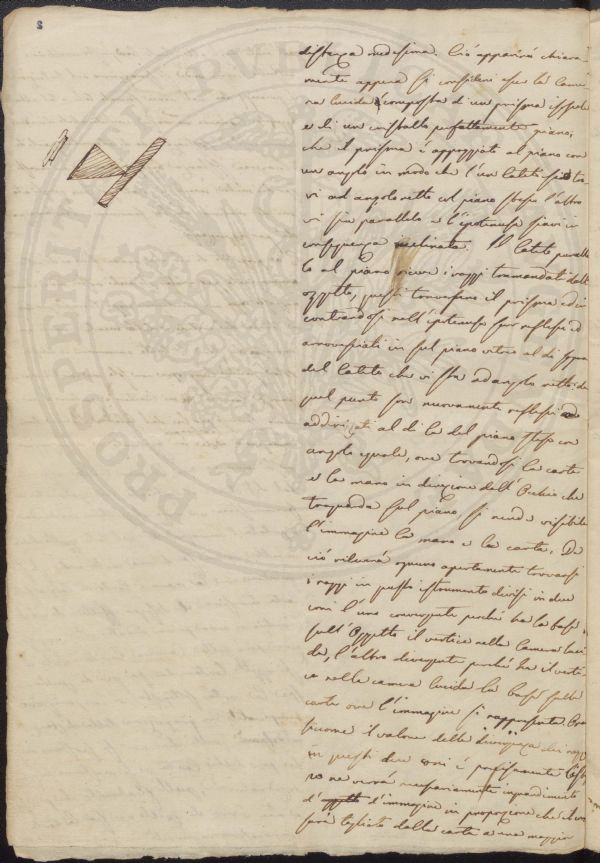 8
distanza medesima. Ciò apparirà chiara
mente appena si consideri che la Came
ra lucida è composta d'un prisma
e di un cristallo perfettamente piano;
che il prisma è appoggiato al piano con
un angolo in modo che l'un lato si tro
vi ad angolo retto col piano stesso l'altro
vi sia parallelo e l'ipotenusa siavi in
conseguenza inclinata. Il lato paralle
lo al piano riceve i raggi tramandati dall'
oggetto, questi traversano il prisma ed in
contrandosi nell'ipotenusa son reflessi ed
arrovesciati in sul piano vitreo al di sopra
del lato che vi sta ad angolo retto: da
quel punto son nuovamente reflessi ed
addirizzati al di là del piano stesso con
angolo eguale, ove trovandosi la carta
e la mano in direzione dell'Occhio che
traguarda sul piano, si rende visibile
l'immagine la mano e la carta. Da
ciò rileverà ognuno apertamente trovarsi
i raggi in questo istrumento divisi in due
coni l'uno convergente perché ha la base
sull'Oggetto il vertice nella Camera luci
da, l'altro divergente perché ha il verti
ce nella camera lucida la base sulla
carta ove l'immagine si rappresenta. Ora
siccome il valore della divergenza dei raggi
in questi due coni è
ne verrà necessariamente ingrandimento
d' l'immagine in proporzione che il cono
sarà tagliato dalla carta a una maggior
PROSPERITATI PVBLICAE